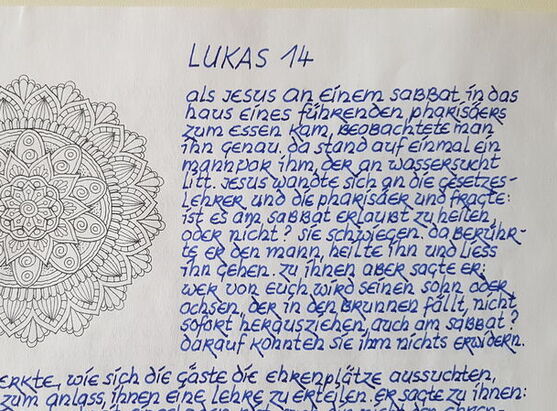 LUKAS 14
als Jesus an einem Sabbat in das
Haus eines führenden Pharisäers
zum Essen kam, beobachtete man
ihn genau. Da stand auf einmal ein
Mann vor ihm, der an Wassersucht
litt. Jesus wandte sich an die Gesetzes-
lehrer und die Pharisäer und fragte:
ist es am Sabbat erlaubt zu heilen,
oder nicht? Sie schwiegen. Da berühr-
te er den Mann, heilte ihn und liess
ihn gehen. Zu ihnen aber sagte er:
wer von euch wird seinen Sohn oder
Ochsen, der in den Brunnen fällt, nicht
sofort herausziehen, auch am Sabbat?
Darauf konnten sie ihm nichts erwidern.
erkte, wie sich die Gäste die Ehrenplätze aussuchten,
zum Anlass, ihnen eine Lehre zu erteilen. Er sagte zu ihnen: